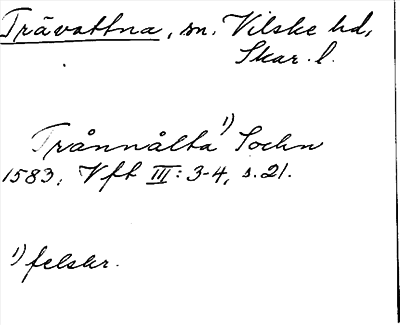 Trävattna, sn, Vilske hd,
Skar. l.
Trånnålta 1) Sochn
1583. Vft III: 3-4, s. 21.
1) felskr.